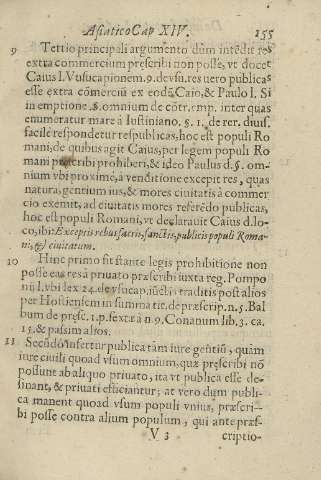 Asiatico Cap XIV. 155
9 Tertio principali argumento dum intēdit res
extra commercium pręscribi non posse, vt docet
Caius l. Vsucapionem. 9. de vsu. res vero publicas
esse extra cōmerciū ex eodē Caio, & Paulo l. Si
in emptione .§. omnium de cōtr. emp. inter quas
enumeratur mare à Iustiniano. §. 1. de rer. diuis.
facile respondetur res publicas, hoc est populi Ro
mani, de quibus agit Caius, per legem populi Ro
mani pręscribi prohiberi, & ideo Paulus d. §. om-
nium vbi proximè, a venditione excepit res, quas
natura, gentium ius, & mores ciuitatis à commer
cio exemit, ad ciuitatis mores referēdo publicas,
hoc est populi Romani, vt declarauit Caius d. lo-
co, ibi: Exceptis rebus sacris, sanctis, publicis populi Roma-
ni, & ciuitatum.
10 Hinc primo sit stante legis prohibitione non
posse eas res à priuato præscribi iuxta reg. Pompo
nij l. vbi lex 24. de vsucap. iūctis traditis post alios
per Hostiensem in summa tit. de præscrip. n. 5. Bal
bum de pręsc. 1. p. sextæ n 9. Conanum lib. 3. ca.
15. & passim alios.
11 Secūdò infertur publica tām iure gentiū, quàm
iure ciuili quoad vsum omnium, quæ pręscribi nō
possunt ab aliquo priuato, ita vt publica esse de-
sinant, & priuati efficiantur; at vero dum publi-
ca manent quoad vsum populi vnius, præscri-
bi posse contra alium populum, qui ante præs-
V 3 criptio-